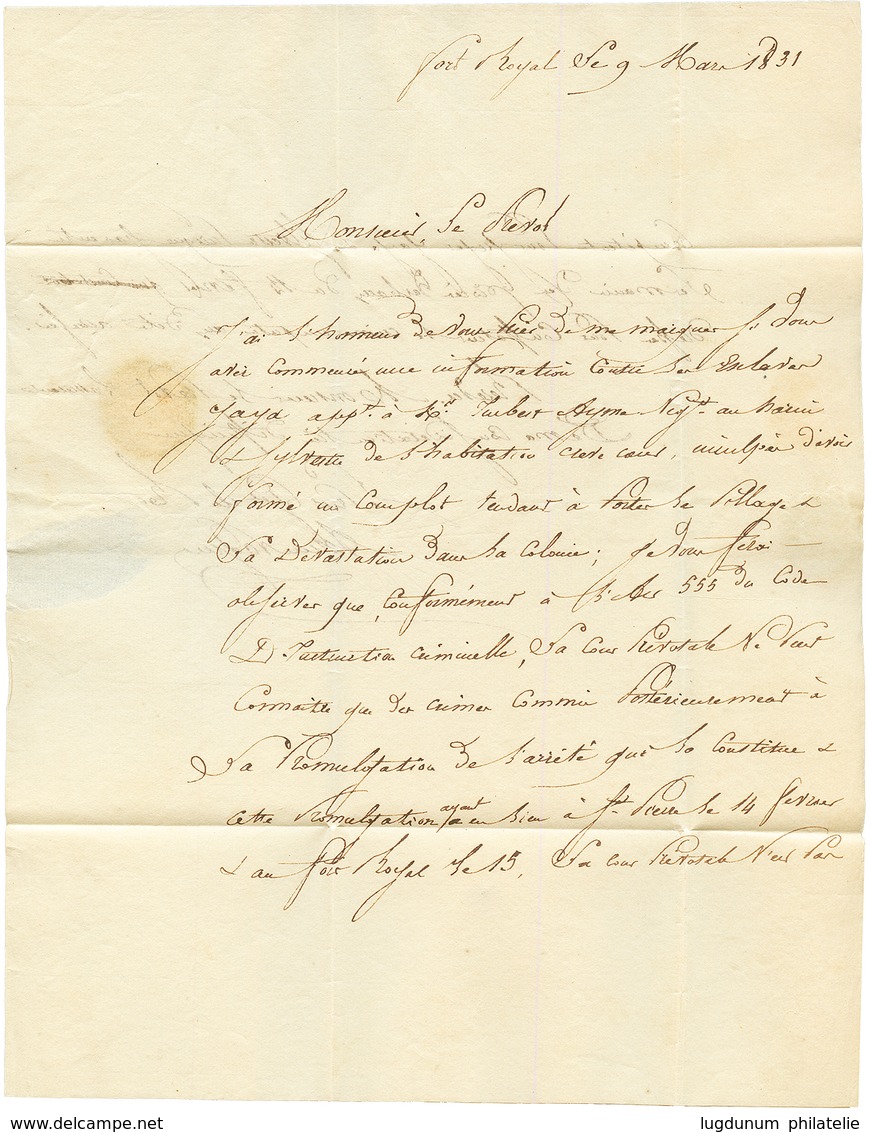 Fort Royal le 9 Mars 1831
Monsieur le Prevot
J'ai l'honneur de vous de me marquer q. vous
avez commencé une information contre les Esclaves
appt. à Mr. Aymé Negt. au
& Sylvestre de l'habitation coeur, inculpés d'avoir
formé un complot tendant à porter le pillage &
la Devastation dans la colonie; je vous ferai
observer que, conformément à l'Art 555 du Code
D'Instruction criminelle, la cour Prevotale ne peut
connaitre que des crimes commis Postérieurement à
la Promulgation de l'arrêté qui la constitue &
cette Promulgation ayant eu lieu à St. Pierre le 14 fevrier
& au fort Royal le 15, la cour Prevotale n'est pas
www.delcampe.net
lugdunum philatelie